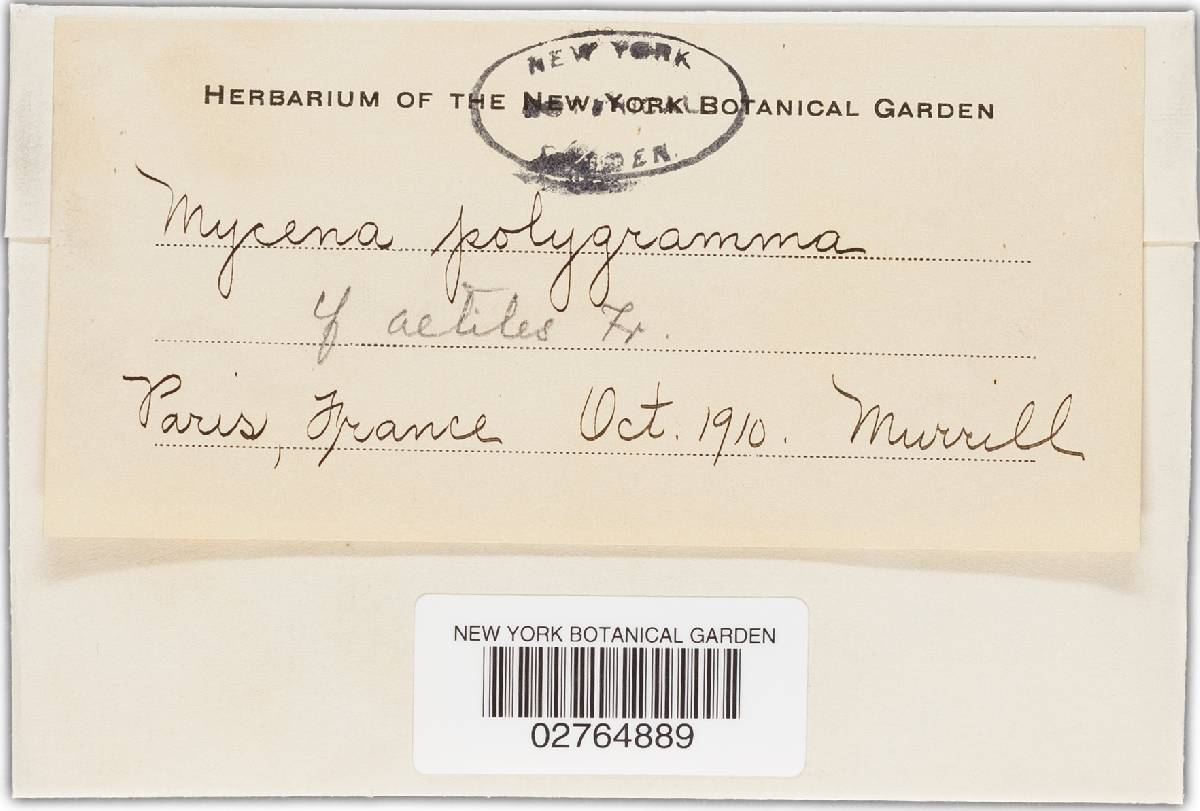 NEW YORK
BOTANICAL
GARDEN.
HERBARIUM OF THE NEW YORK BOTANICAL GARDEN
Mycena polygramma
cf aetites Fr.
Paris, France Oct. 1910. Murrill
NEW YORK BOTANICAL GARDEN
02764889